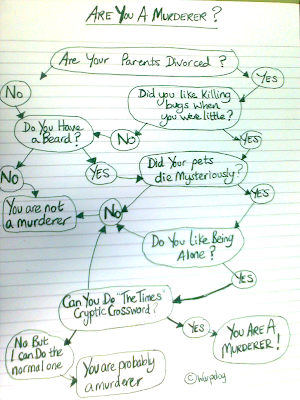 ARE YOU A MURDERER ?
Are Your Parents Divorced ?
No
Yes
Did you like Killing
bugs when
you were little?
Do You Have
a Beard ?
No
YES
No
YES
Did Your pets
die Mysteriously?
You are not
a murderer
No
YES
Do You Like Being
Alone ?
YES
Can You Do "The Times"
Cryptic Crossword ?
No But
I can Do the
normal one
Yes
YOU ARE A
MURDERER !
You are probably
a murderer
© Warpdog